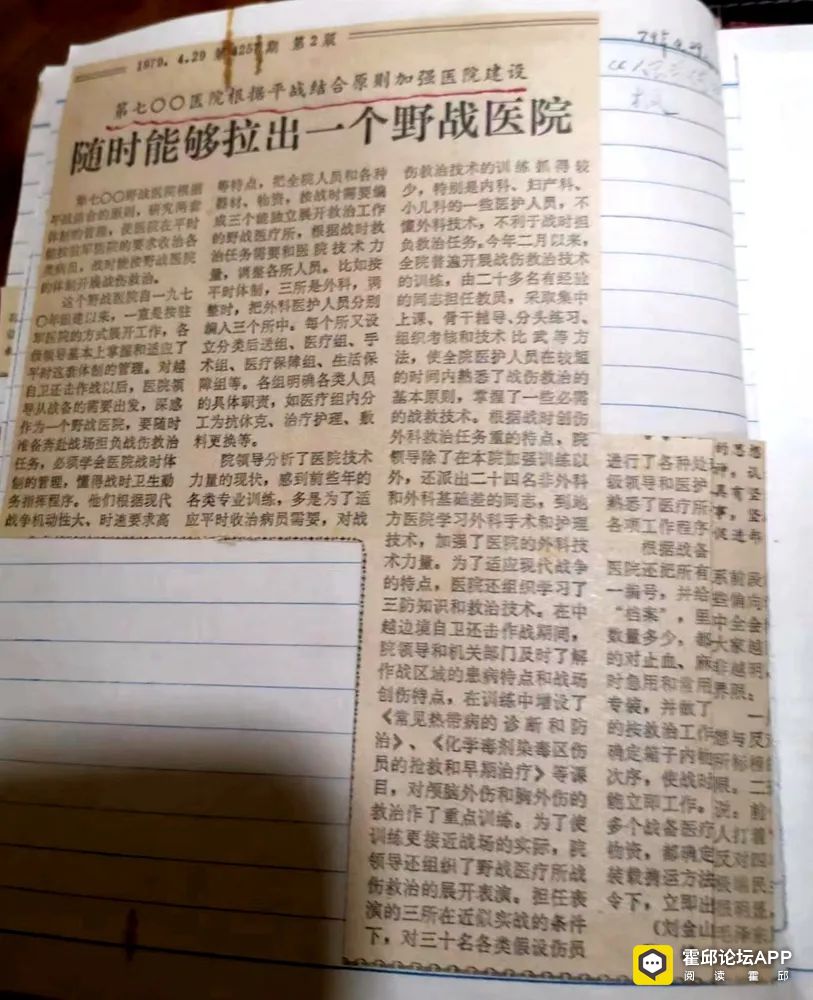 1979.4.29 第4257期 第2版
第七〇〇医院根据平战结合原则加强医院建设
随时能够拉出一个野战医院
第七〇〇野战医院根据
平战结合的原则，研究两套
体制的管理，使医院在平时
能按驻军医院的要求收治各
类病员，战时能按野战医院
的体制开展战伤救治。
这个野战医院自一九七
〇年组建以来，一直是按驻
军医院的方式展开工作，各
级领导基本上掌握和适应了
平时这套体制的管理。对越
自卫还击作战以后，医院领
导从战备的需要出发，深感
作为一个野战医院，要随时
准备奔赴战场担负战伤救治
任务，必须学会医院战时体
制的管理，懂得战时卫生勤
务指挥程序。他们根据现代
战争机动性大、时速要求高
等特点，把全院人员和各种
器材、物资，按战时需要编
成三个能独立展开救治工作
的野战医疗所，根据战时救
治任务需要和医院技术力
量，调整各所人员。比如按
平时体制，三所是外科，调
整时，把外科医护人员分别
编入三个所中。每个所又设
立分类后送组、医疗组、手
术组、医疗保障组、生活保
障组等。各组明确各类人员
的具体职责，如医疗组内分
工为抗休克、治疗护理、敷
料更换等。
院领导分析了医院技术
力量的现状，感到前些年的
各类专业训练，多是为了适
应平时收治病员需要，对战
伤救治技术的训练抓得较
少，特别是内科、妇产科、
小儿科的一些医护人员，不
懂外科技术，不利于战时担
负救治任务。今年二月以来，
全院普遍开展战伤救治技术
的训练，由二十多名有经验
的同志担任教员，采取集中
上课、骨干辅导、分头练习、
组织考核和技术比武等方
法，使全院医护人员在较短
的时间内熟悉了战伤救治的
基本原则，掌握了一些必需
的战救技术。根据战时创伤
外科救治任务重的特点，院
领导除了在本院加强训练以
外，还派出二十四名非外科
和外科基础差的同志，到地
方医院学习外科手术和护理
技术，加强了医院的外科技
术力量。为了适应现代战争
的特点，医院还组织学习了
三防知识和救治技术。在中
越边境自卫还击作战期间，
院领导和机关部门及时了解
作战区域的患病特点和战场
创伤特点，在训练中增设了
《常见热带病的诊断和防
治》、《化学毒剂染毒区伤
员的抢救和早期治疗》等课
目，对颅脑外伤和胸外伤的
救治作了重点训练。为了使
训练更接近战场的实际，院
领导还组织了野战医疗所战
伤救治的展开表演。担任表
演的三所在近似实战的条件
下，对三十名各类假设伤员
进行了各种处
级领导和医护
熟悉了医疗所
各项工作程序
根据战备
医院还把所有
一编号，并给
“档案”，里
数量多少，都
的对止血、麻
时急用和常用
专装，并做了
的按救治工作
确定箱子内物
次序，使战时
能立即工作。
多个战备医疗
物资，都确定
装载携运方法
令下，立即出
（刘金山
的思想
具有坚
事，坚
促进部
系前段
些偏向
中全会
大家越
非越明，
界限。
想与反
所标榜
限。二
说：前
人打着
反对四
霍邱论坛APP
阅读霍邱